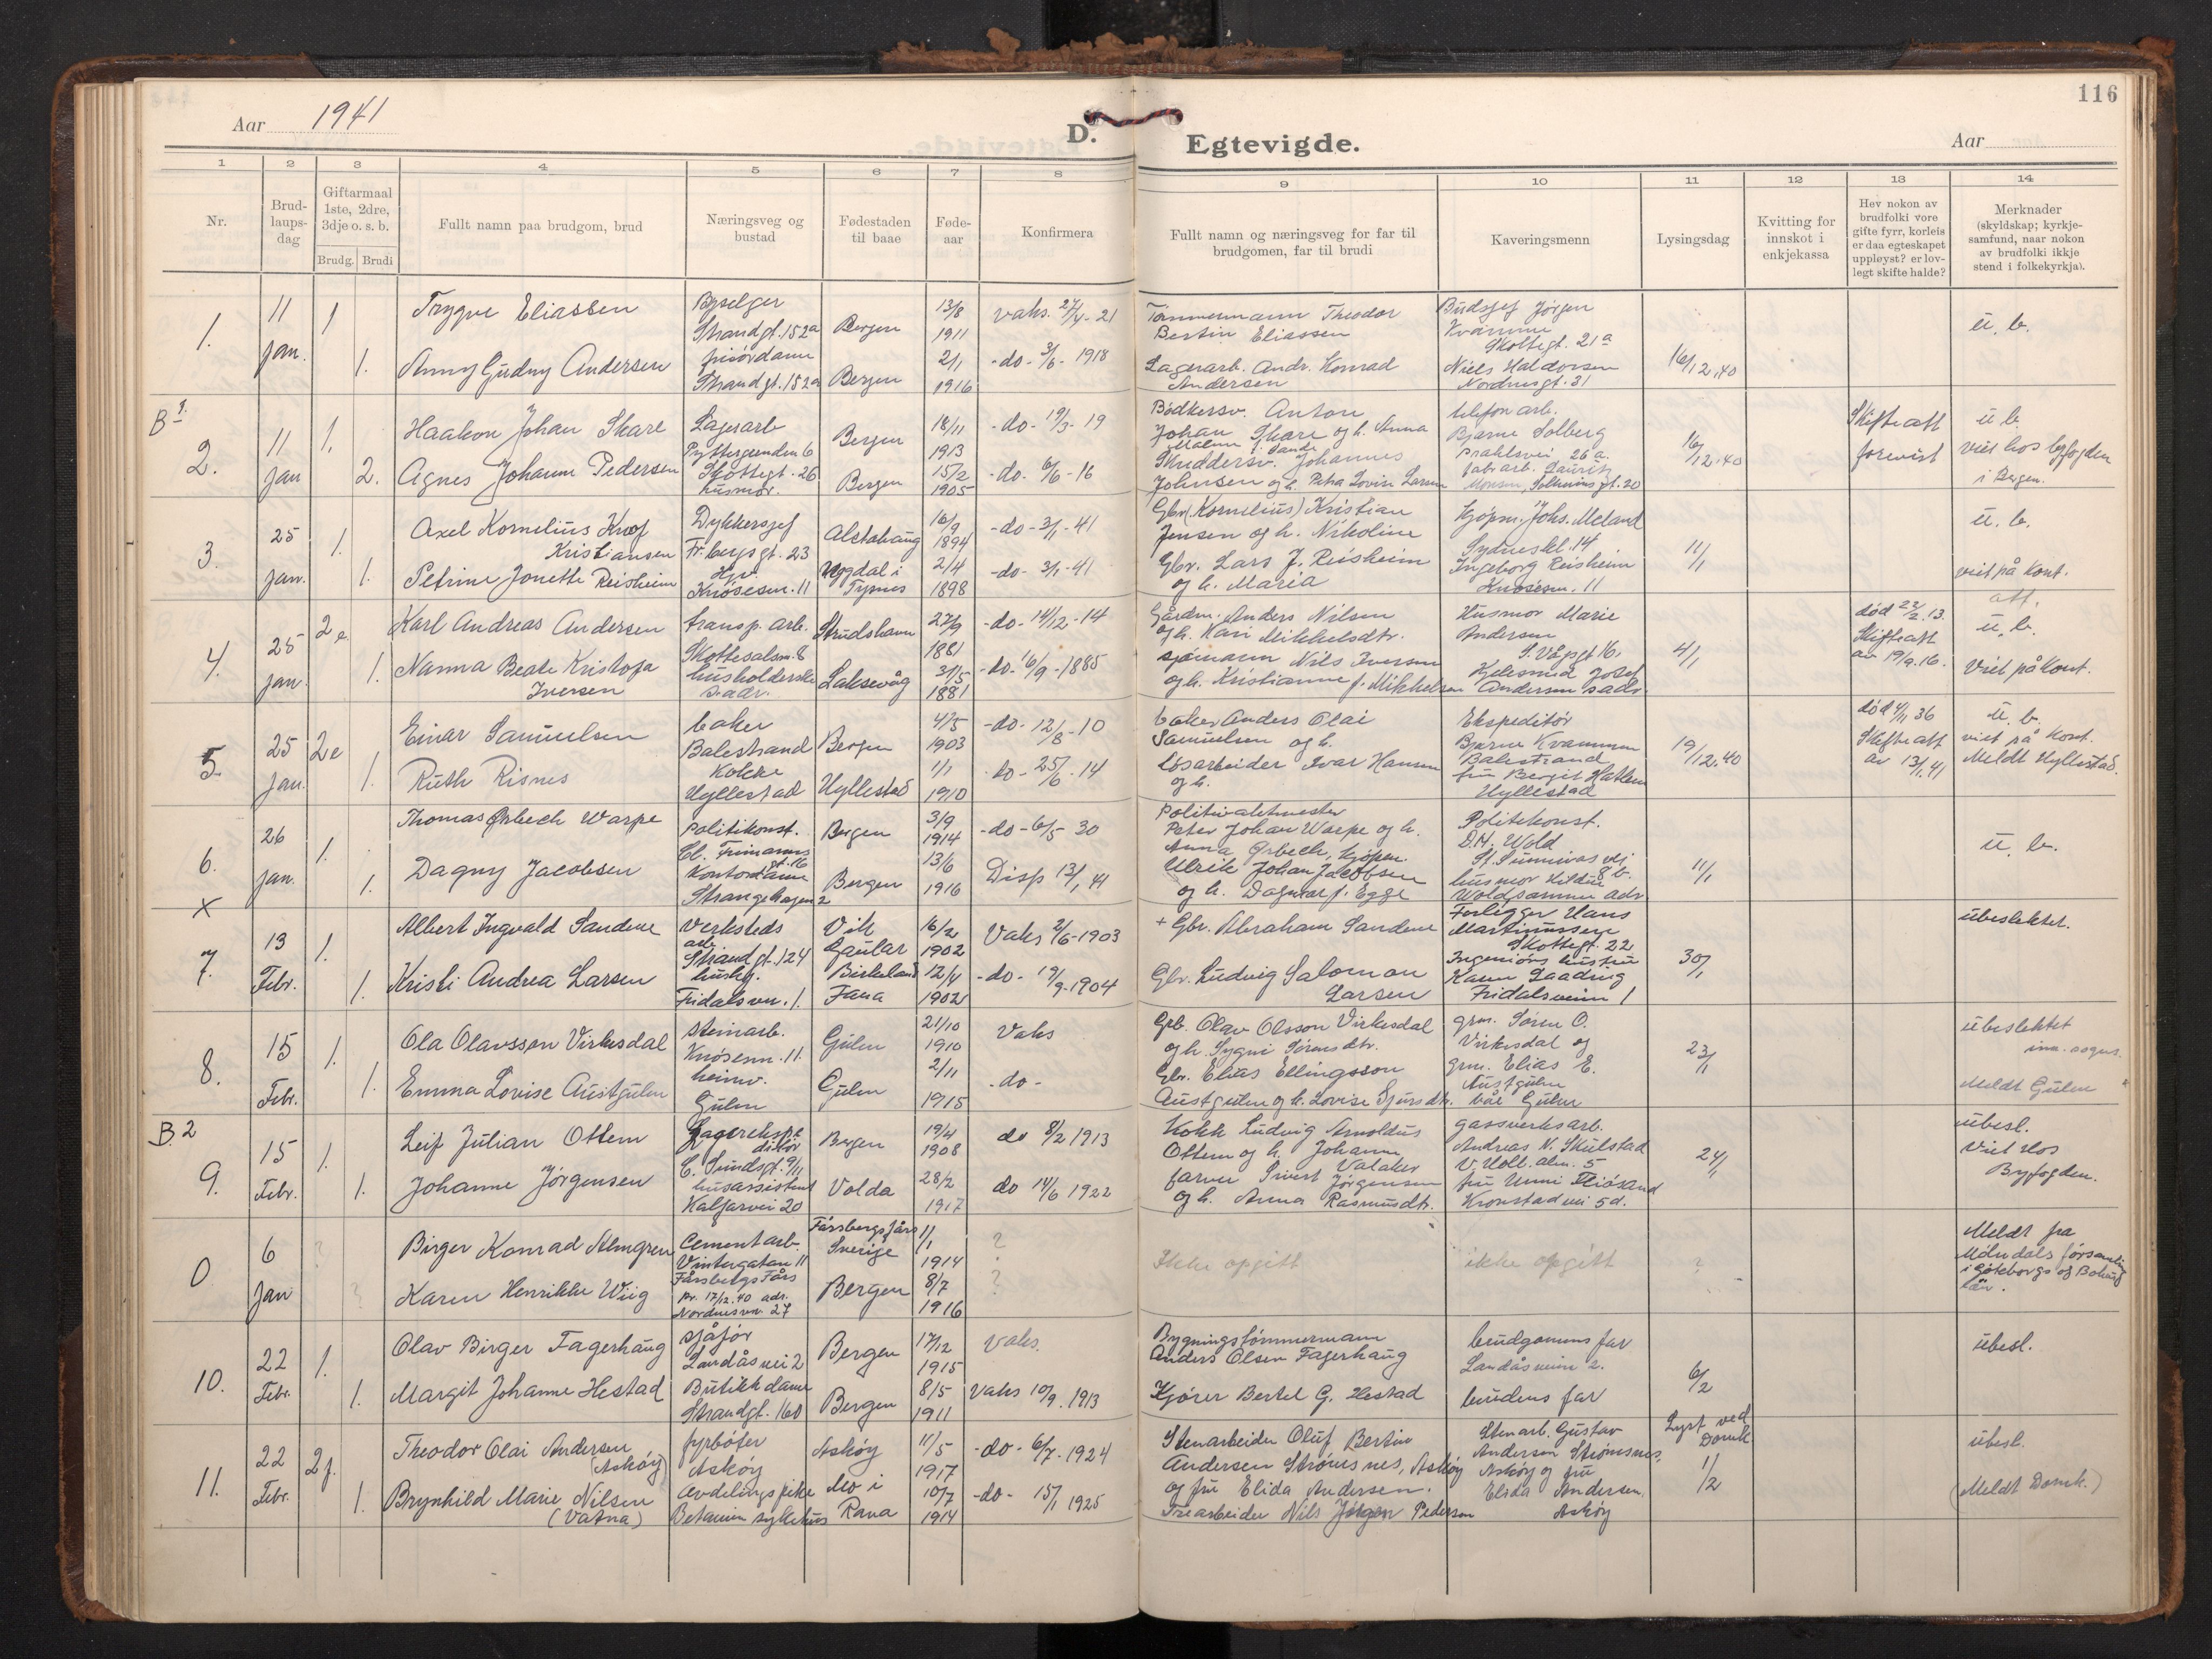 116
Aar 1941
D. Egtevigde.
Aar
1 2 3 4 5 6 7 8 9 10 11 12 13 14
Nr.
Brud-
laups-
dag
Giftarmaal
1ste, 2dre,
3dje o. s. b.
Brudg. Brudi
Fullt namn paa brudgom, brud
Næringsveg og
bustad
Fødestaden
til baae
Føde-
aar
Konfirmera
Fullt namn og næringsveg for far til
brudgomen, far til brudi
Kaveringsmenn
Lysingsdag
Kvitting for
innskot i
enkjekassa
Hev nokon av
brudfolki vore
gifte fyrr, korleis
er daa egteskapet
uppløyst? er lov-
legt skifte halde?
Merknader
(skyldskap; kyrkje-
samfund, naar nokon
av brudfolki ikkje
stend i folkekyrkja).
1.
11
jan.
1
1.
Trygve Eliassen
Anny Gudny Andersen
Strandgt. 152a
frisørdame
Strandgt. 152a
Bergen
Bergen
13/8
1911
2/1
1916
vaks. 27/4-21
-do- 3/6-1918
Tømmermann Theodor
Bertin Eliassen
Lagerarb. Andr. Konrad
Andersen
Budsjef Jørgen
Kvamme
Skottegt. 21a
Niels Haldorsen
Nordnesgt. 31
16/12.40
u. b.
B1.
2.
11
jan
1.
2.
Haakon Johan Skare
Agnes Johanne Pedersen
Lagerarb
Pyttergrenden 6
Skottegt. 26
husmor.
Bergen
Bergen
18/11
1913
15/2
1905
-do- 19/3-19
-do. 6/6-16
Bødkersv. Anton
Johan Skare og h. Anna
Malene f. Sande
Skreddersv. Johannes
Johnsen og h. Petra Lovise Larsen
telefon arb.
Bjarne Solberg
Prahlsvei 26a.
fabr arb. Lauritz
Monsen, Solheimsgt. 20
16/12.40
Skifteatt
forevist
u b.
viet hos byfogden
i Bergen.
3.
25
jan.
1.
1.
Axel Kornelius Krof
Kristiansen
Petrine Jonette Reisheim
Dykkersjef
Fr.bergsgt. 23
Hjv.
Knøsesm. 11
Alstahaug
Uggdal i
Tysnes
16/9
1894
2/4
1898
-do- 3/1-41
-do- 3/1-41
Gbr (Kornelius) Kristian
Jensen og h. Nikoline
Gbr. Lars J. Reisheim
og h. Maria
Kjøpm. Johs. Meland
Sydneskl. 14
Ingeborg Reisheim
Knøsesm. 11
11/1
u. b.
viet på kont.
att.
4.
25
jan.
2e
1.
Karl Andreas Andersen
Nanna Beate Kristofa
Iversen
transp. arb.
Skottesalm. 8
husholderske
s. adr.
Strudshavn
Laksevåg
27/9
1881
31/5
1881
-do- 14/12-14
-do- 16/9-1885
Gårdm. Anders Nilsen
og h. Kari Mikkelsdtr.
sjømann Nils Iversen
og h. Kristianne f. Mikkelsen
Husmor Marie
Andersen
S. Vågsgt 16.
Kjelesmed Josef
Andersen s adr.
4/1
død 22/2.13.
Skifteatt
av 19/9.16.
u. b.
Viet på kont.
5.
25
jan.
2e
1.
Einar Samuelsen
Ruth Risnes
baker
Balestrand
Kokke
Hyllestad
Bergen
Hyllestad
4/5
1903
1/1
1910
-do- 12/8-10
-do- 25/6-14
baker Anders Olai
Samuelsen og h.
Løsarbeider Ivar Hansen
og h.
Ekspeditør
Bjarne Kvammen
Balestrand
fru Bergit Hatlem
Hyllestad
19/12.40
død 4/11 36
Skifteatt
av 13/1.41
u. b.
viet på kont.
Meldt Hyllestad.
6.
26
jan.
1.
1.
Thomas Ørbech Warpe
Dagny Jacobsen
Politikonst.
Cl. Frimanns
gt. 16
Kontordame
Strangehagen 2
Bergen
Bergen
3/9
1914
13/6
1916
-do- 6/5-30
Disp 13/1 41
Peter Johan Warpe og h.
Anna Ørbech. Kjøpm.
Ulrik Johan Jacobsen
og h. Dagmar f. Egge
Politikonst.
D.H. Wold
St. Sunnivas vei
8 b.
husmor Hildur
Wold, samme adr
11/1
u. b.
x
7.
13
Febr.
1.
1.
Albert Ingvald Sandene
Kristi Andrea Larsen
Verksteds
arb.
Strandgt. 124
Fridalsvn. 1.
Vik
Gaular
Birkeland
Fana
16/2
1902
12/4
1902
Vaks 2/6-1903
-do- 19/9-1904
+ Gbr. Abraham Sandene
Gbr. Ludvig Salomon
Larsen
Forlegger Hans
Martinussen
Skottegt. 22
Ingeniørs hustru
Fridalsveien 1
30/1
ubeslektet.
8.
15
Febr.
1.
1.
Ola Olavsson Virkesdal
Emma Lovise Austgulen
Steinarb.
Knøsesm. 11.
heimv.
Gulen
Gulen
Gulen
21/10
1910
2/11
1915
Vaks
-do-
Grb. Olav Olsson Virkesdal
og h. Sygni Sørensdtr.
Gbr. Elias Ellingsson
Austgulen og h. Lovise Sjursdtr.
grm. Søren O.
Virkesdal og
grm. Elias E.
Austgulen
båe Gulen
23/1
ubeslektet
Meldt Gulen
B.2
9.
15
Febr.
1.
1.
Leif Julian Ottem
Johanne Jørgensen
Lagerekspe
ditør
C. Sundsgt. 9/11
husassistent
Kalfarvei 20
Bergen
Volda
19/4
1908
28/2
1917
do 8/2 1913
do 14/6 1922
Kokk Ludvig Arnoldus
Ottem og h. Johanne
Valaker
farver Sivert Jørgensen
og h. Anna Rasmusdtr.
gassverksarb.
Andreas N. Skulstad
V. Holb. alm. 5
Kronstadvei 5d.
24/1
ubesl.
Viet Hos
Byfogden.
0
6
Jan
?
?
Birger Konrad Almgren
Karen Henrikke Wiig
Cementarb.
Vintergatan 11
Fåssbergs Fårs
pr. 17/12.40 adr.
Nordnesvn. 27
Sverige
Bergen
1/1
1914
8/7
1916
?
?
Ikke opgitt
ikke opgitt
?
Meldt fra
Mölndals församling
i Göteborgs og Bohus
län.
10.
22
Febr.
1.
1.
Olav Birger Fagerhaug
Margit Johanne Hestad
sjåfør
Landåsvei 2
Butikkdame
Strandgt. 160
Bergen
Bergen
17/12
1915
8/5
1911
vaks.
vaks 10/9. 1913
Bygningstømmermann
Anders Olsen Fagerhaug
Kjører Bertel G. Hestad
brudgomens far
Landåsveien 2.
brudens far
6/2
ubesl.
11.
22
Febr.
2f.
1.
Theodor Olai Andersen
(Askøy)
Brynhild Marie Nilsen
(Vatna)
fyrbøter
Askøy
Avdelingspike
Betanien sykehus
Askøy
Mo i
Rana
11/5
1917
10/7
1914
-do- 6/7-1924
-do- 15/1 1925
Stenarbeider Oluf Bertin
Andersen Strømsnes, Askøy
og fru Elida Andersen.
Trearbeider Nils Jørgen Pederson
Stenarb. Gustav
Andersen Strømsnes,
Askøy og fru
Elida Andersen.
Askøy
Lyst ved
Domk.
1/2
ubesl.
(Meldt Domk.)